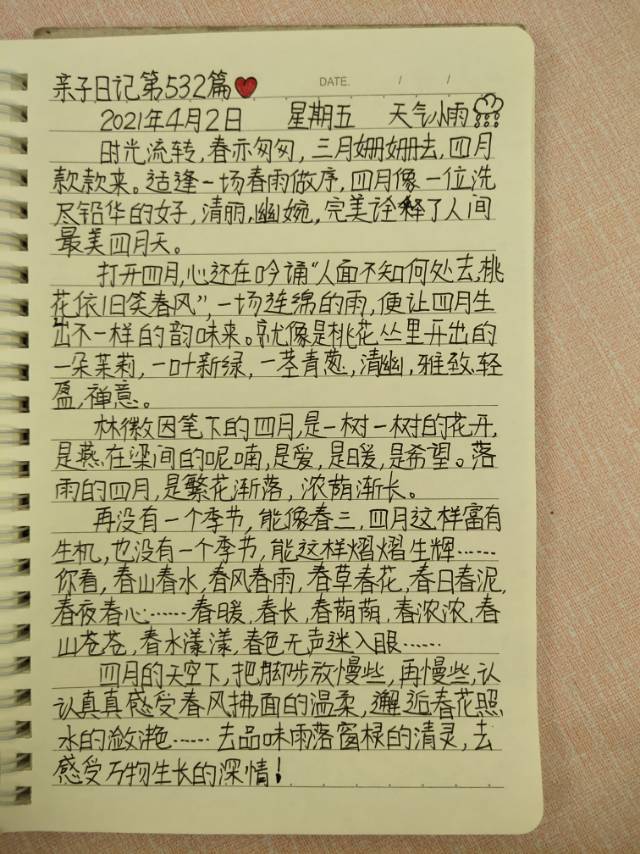 亲子日记第532篇 DATE. / /
2021年4月2日 星期五 天气小雨
时光流转,春亦匆匆,三月姗姗去,四月
款款来。适逢一场春雨做序,四月像一位洗
尽铅华的女子,清丽,幽婉,完美诠释了人间
最美四月天。
打开四月,心还在吟诵“人面不知何处去,桃
花依旧笑春风”,一场连绵的雨,便让四月生
出不一样的韵味来。就像是桃花丛里开出的
一朵茉莉,一叶新绿,一茎青葱,清幽,雅致,轻
盈,禅意。
林徽因笔下的四月,是一树一树的花开,
是燕在梁间的呢喃,是爱,是暖,是希望。落
雨的四月,是繁花渐落,浓荫渐长。
再没有一个季节,能像春三,四月这样富有
生机,也没有一个季节,能这样熠熠生辉……
你看,春山春水,春风春雨,春草春花,春日春泥,
春夜春心……春暖,春长,春荫荫,春浓浓,春
山苍苍,春水漾漾,春色无声迷入眼……
四月的天空下,把脚步放慢些,再慢些,认
认真真感受春风拂面的温柔,邂逅春花照
水的潋滟……去品味雨落窗棂的清灵,去
感受万物生长的深情!